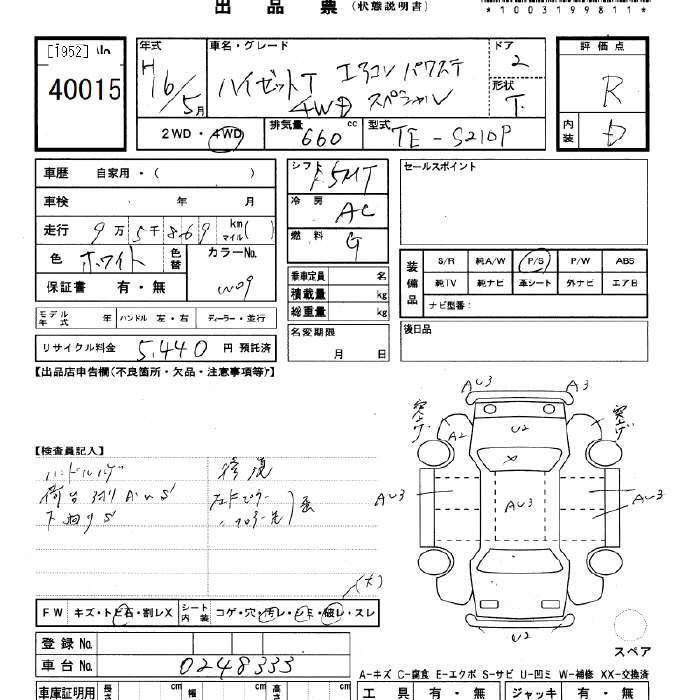 出品票 (状態説明書)
*1003199811*
[1952] 年式 車名・グレード ドア 評価点
40015 H16/5月 ハイゼットT エアコン パワステ 2 R
4WD スペシャル 形状 T.
2WD・4WD 排気量 660 cc 型式 TE-S210P 内装 D
車歴 自家用・( ) シフト F5MT セールスポイント
車検 年 月 冷房 AC
走行 9万5千869 km マイル( ) 燃料 G
色 ホワイト 色替 カラーNo. W09
保証書 有・無
乗車定員 名
積載量 kg
総重量 kg
装備品 S/R 純A/W P/S P/W ABS
純TV 純ナビ 革シート 外ナビ エアB
ナビ型番:
モデル年式 年 ハンドル 左・右 ディーラー・並行
名変期限 月 日
後日品
リサイクル料金 5,440 円 預託済
【出品店申告欄(不良箇所・欠品・注意事項等)】
AU3 A3
突上げ A2 U2 突上げ
【検査員記入】
ハンドルハゲ 修復
荷台 AUS
下廻りS
AU3 AU3 AU3
(大)
FW キズ・トビ石・割レX シート内装 コゲ・穴・汚レ・シミ・破レ・スレ
U2
スペア
登録No.
車台No. 0248333
A-キズ C-腐食 E-エクボ S-サビ U-凹ミ W-補修 XX-交換済
車庫証明用 長さ cm 幅 cm 高さ cm 工具 有・無 ジャッキ 有・無